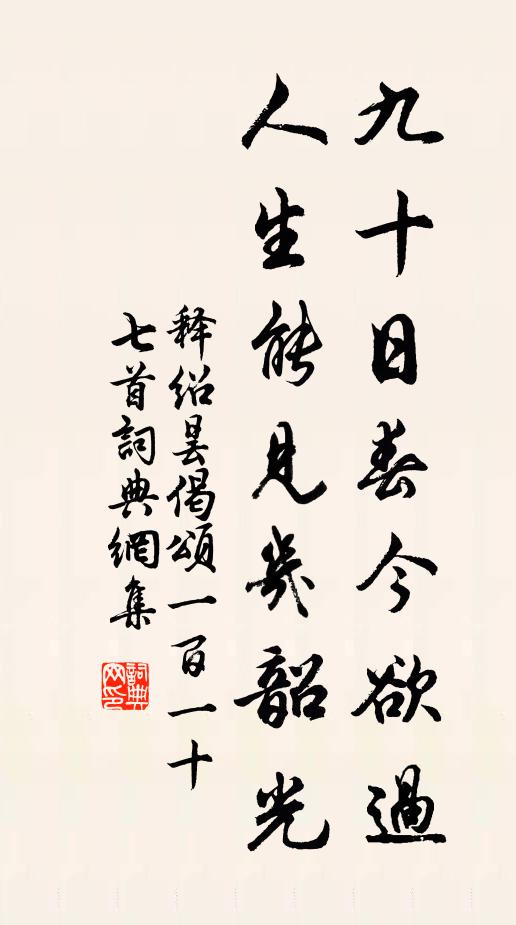 九十日春今欲過
人生能見幾韶光
释紹曇偈頌一百一十
七首詞典網集
詞典
网印